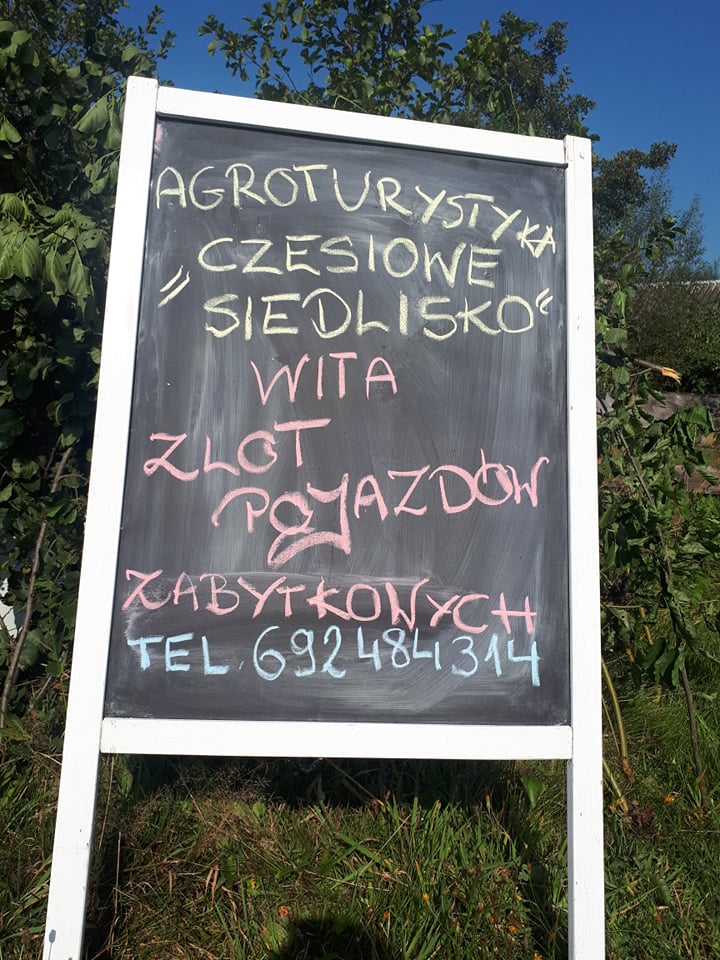 AGROTURYSTYKA
CZESIOWE
"SIEDLISKO"
WITA
ZLOT
POJAZDÓW
ZABYTKOWYCH
TEL. 692 484 314